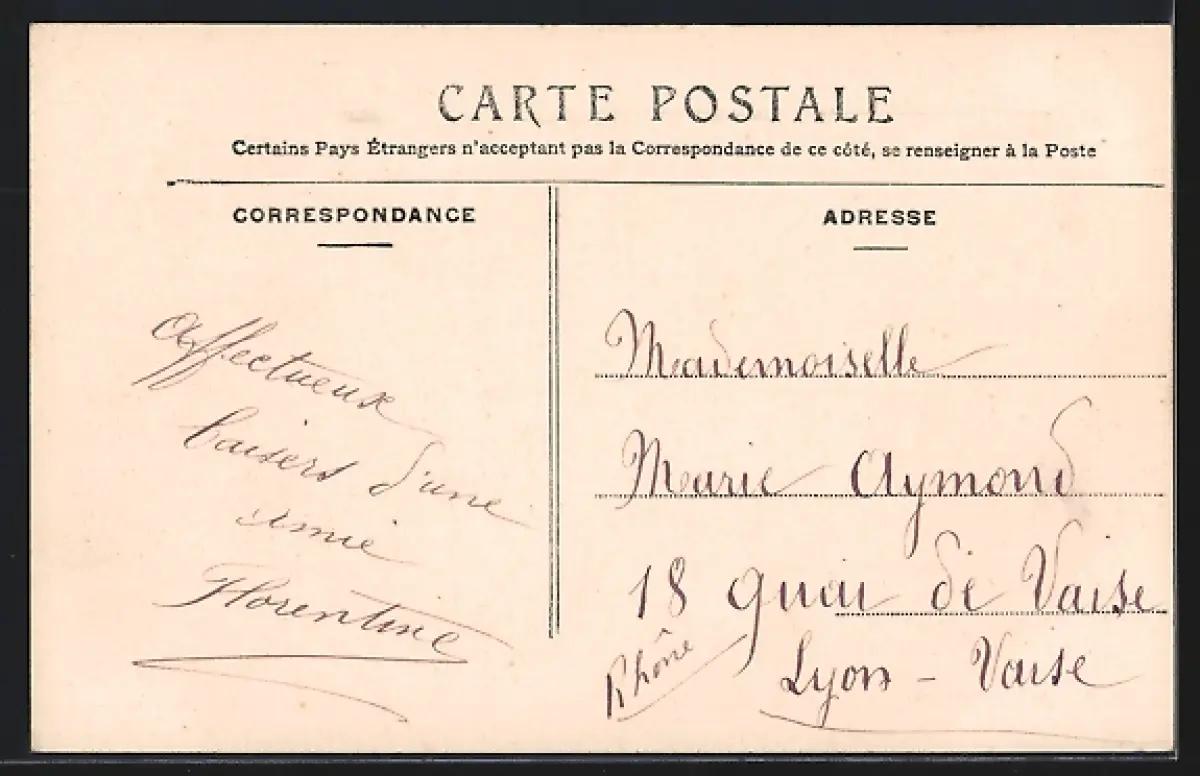 CARTE POSTALE
Certains Pays Étrangers n'acceptant pas la Correspondance de ce côté, se renseigner à la Poste
CORRESPONDANCE
affectueux
baisers d'une
amie
Florentine
ADRESSE
Mademoiselle
Marie Aymond
18 quai de Vaise
Lyon - Vaise
Rhône